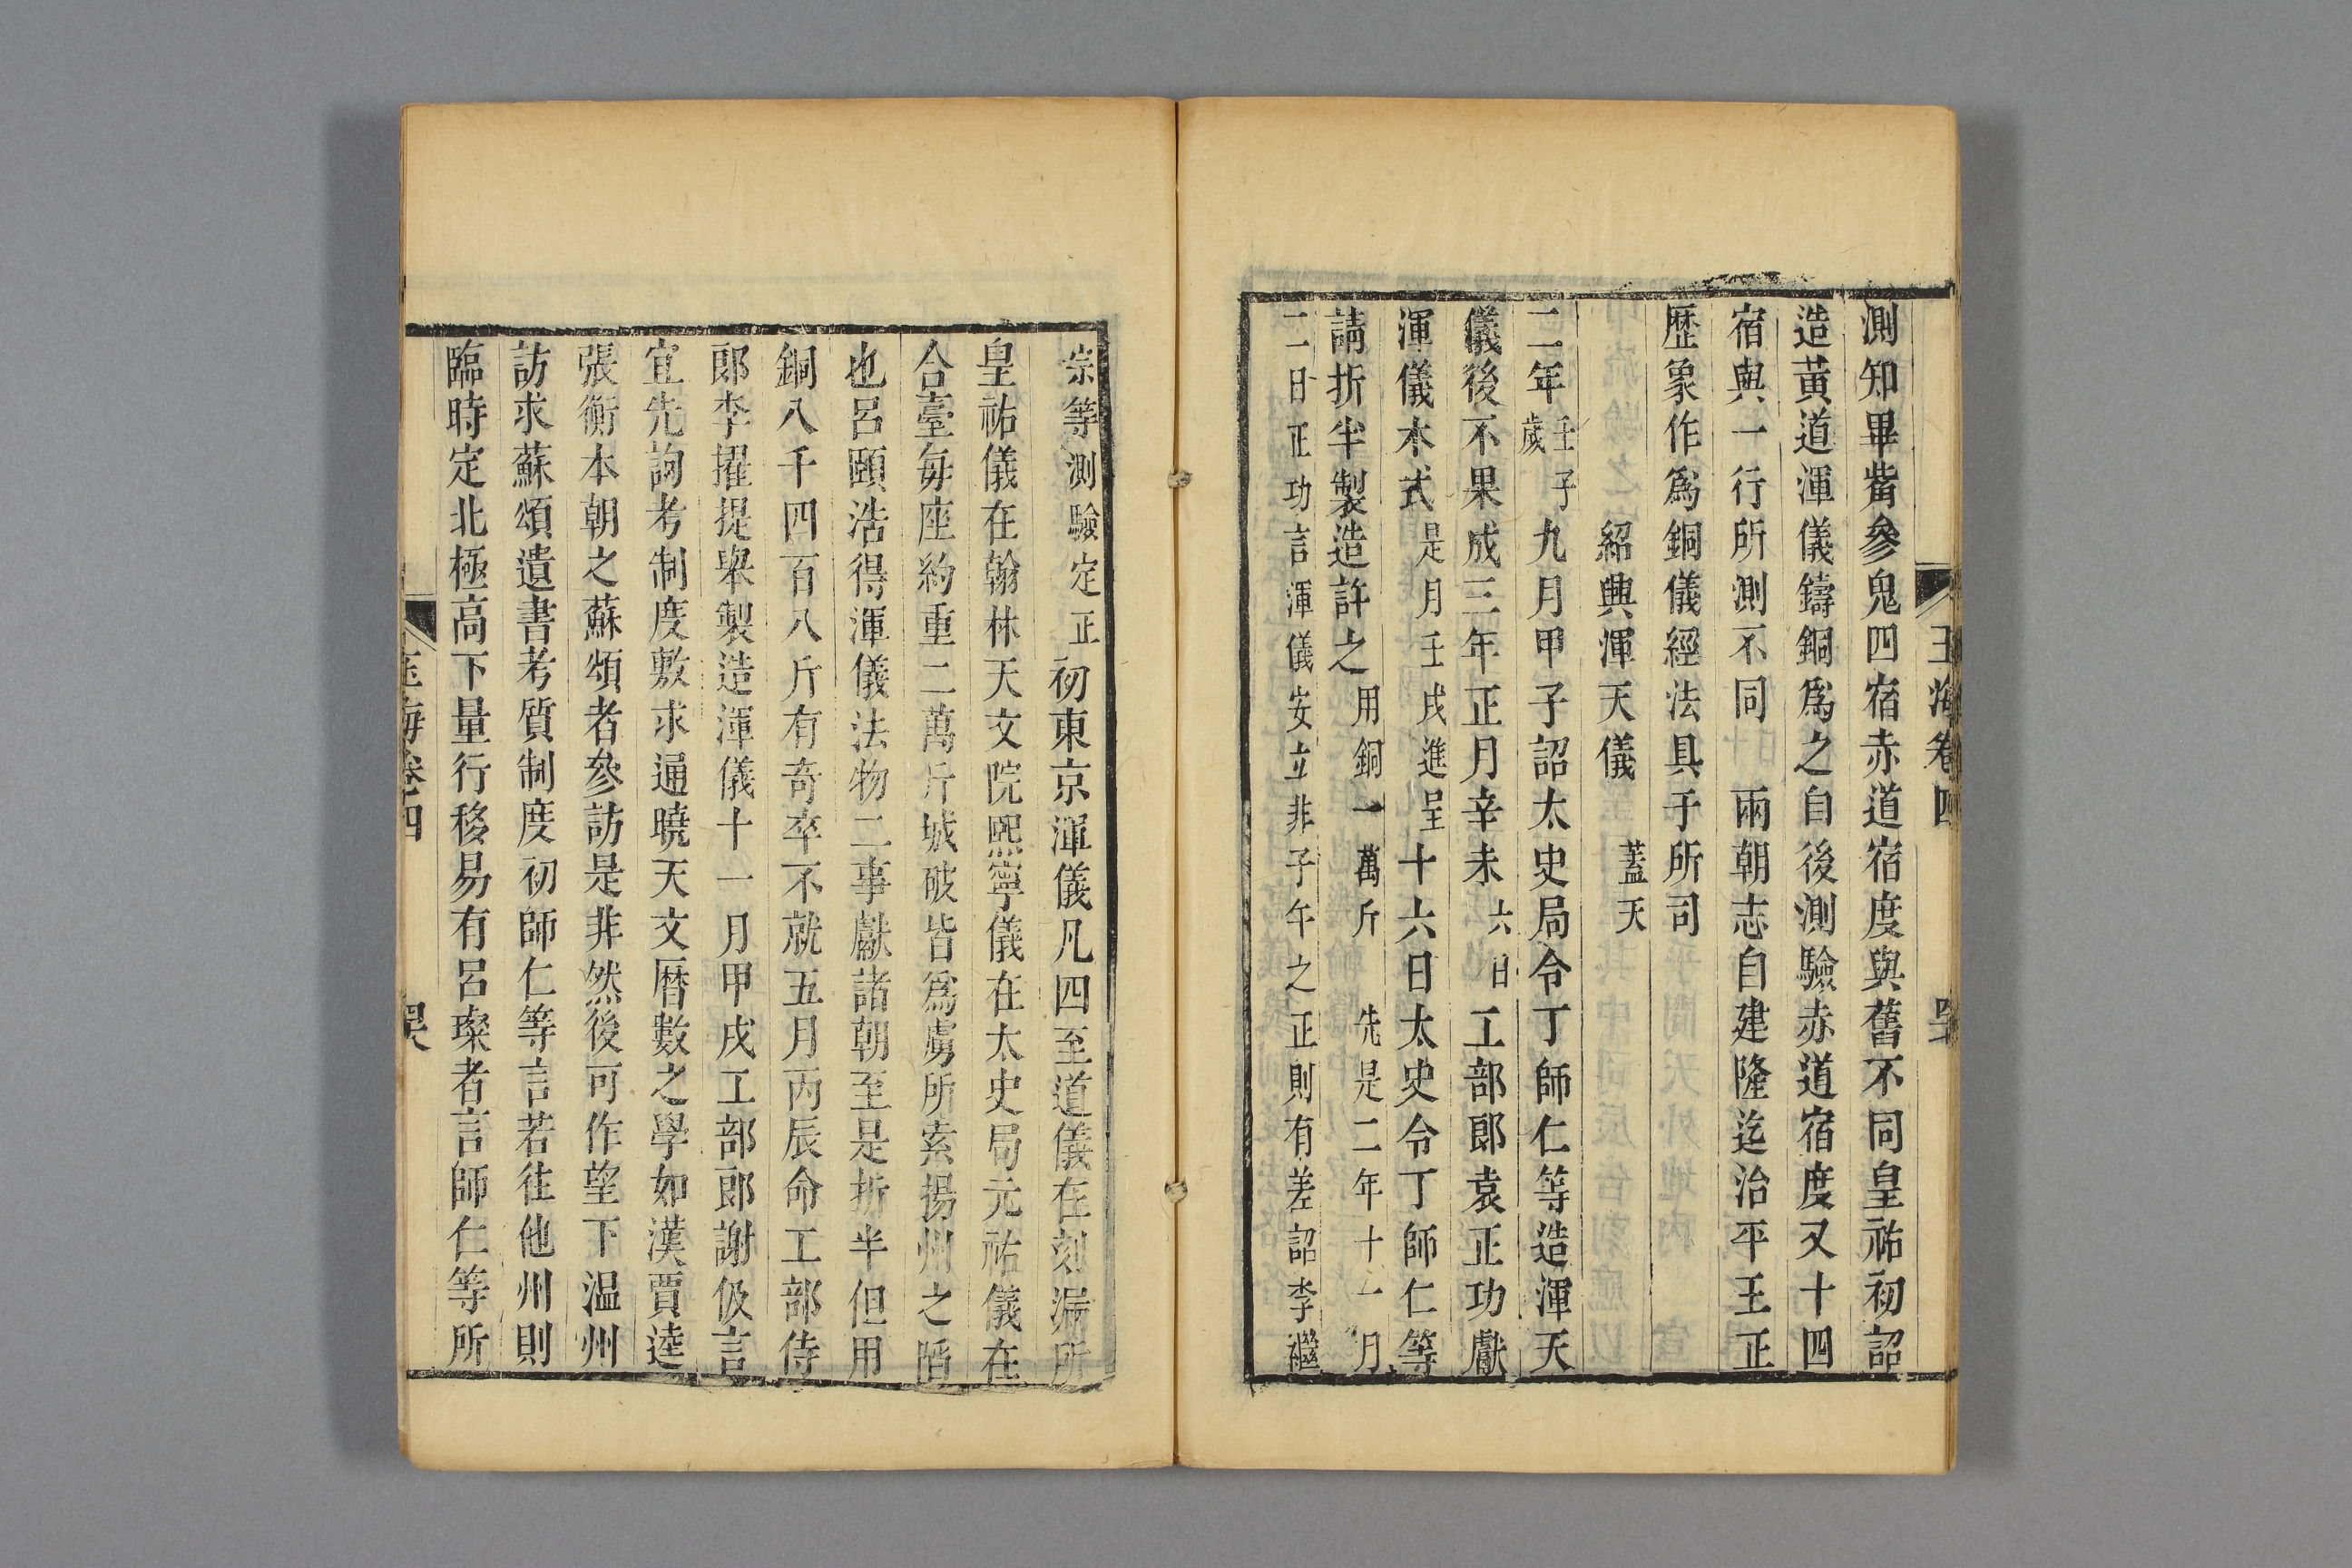 玉海卷四
測知畢觜參鬼四宿赤道宿度與舊不同皇祐初詔
造黃道渾儀鑄銅爲之自後測驗赤道宿度又十四
宿與一行所測不同 兩朝志自建隆迄治平王正
歷象作爲銅儀經法具于所司
紹興渾天儀 蓋天
二年壬子歲九月甲子詔太史局令丁師仁等造渾天
儀後不果成三年正月辛未六日工部郎袁正功獻
渾儀木式是月壬戌進呈十六日太史令丁師仁等
請折半製造許之用銅一萬斤 先是二年十一月
二日正功言渾儀安立非子午之正則有差詔李繼
宗等測驗定正初東京渾儀凡四至道儀在刻漏所
皇祐儀在翰林天文院熙寧儀在太史局元祐儀在
合臺每座約重二萬斤城破皆爲虜所索揚州之陷
也呂頤浩得渾儀法物二事獻諸朝至是折半但用
銅八千四百八斤有奇卒不就五月丙辰命工部侍
郎李擢提舉製造渾儀十一月甲戌工部郎謝伋言
宜先詢考制度敷求通曉天文曆數之學如漢賈逵
張衡本朝之蘇頌者參訪是非然後可作望下温州
訪求蘇頌遺書考質制度初師仁等言若往他州則
臨時定北極高下量行移易有呂璨者言師仁等所
玉海卷四